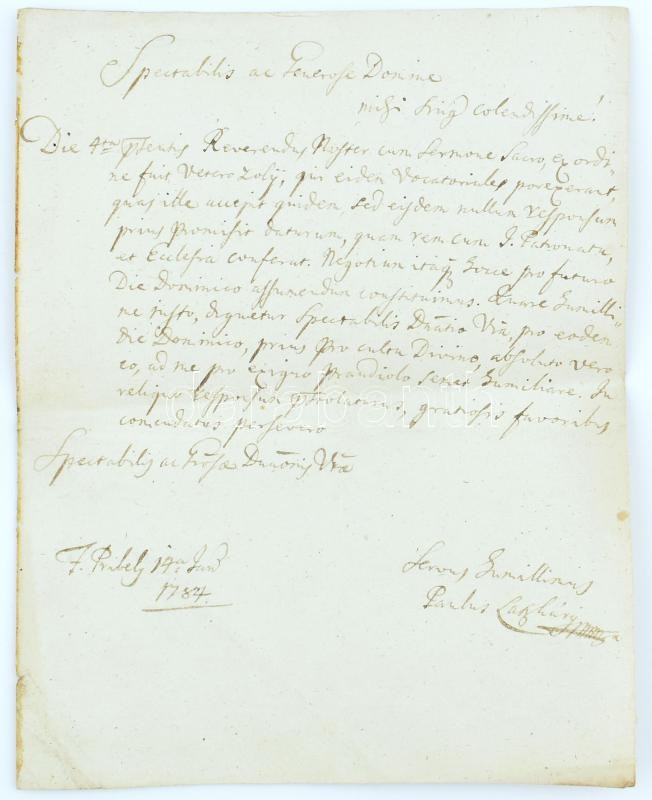 Spectabilis ac Generose Domine
mihi colendissime!
Die 4ta pſentis Reverendus Noster cum Sermone Sacro, ex ordi=
ne fuit Vetero Zolij, qui eidem Vocatoriales porexerant,
quas ille accepit quidem, sed eisdem nullum responsum
prius promisit daturum, quam rem cum I. Patronatu,
et Ecclesia conferat. Negotium itaq hocce pro futuro
Die Dominico assumendum constituimus. Quare humilli=
me insto, dignetur Spectabilis Dnatio Vra, pro eodem
die Dominico, prius pro cultu Divino, absoluto vero
eo, ad me pro exiguo prandiolo semet humiliare. In
reliquo responsum pstolaturus, gratiosis favoribus
comendatus persevero
Spectabilis ac Grosae Dnaonis Vrae
F. Pribely 14a Jan
1784.
Servus humillimus
Paulus
darabanth